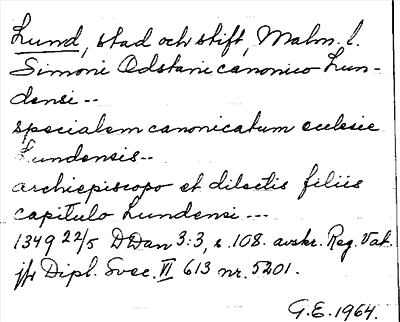 Lund, stad och stift, Malm. l.
Simoni Odstani canonico Lun-
densi --
specialem canonicatum ecclesie
Lundensis --
archiepiscopo et dilectis filiis
capitulo Lundensi ---
1349 22/5 DDan 3:3, s. 108. avskr. Reg. Vat.
jfr Dipl. Svec. VI 613 nr. 5201.
G.E. 1964.